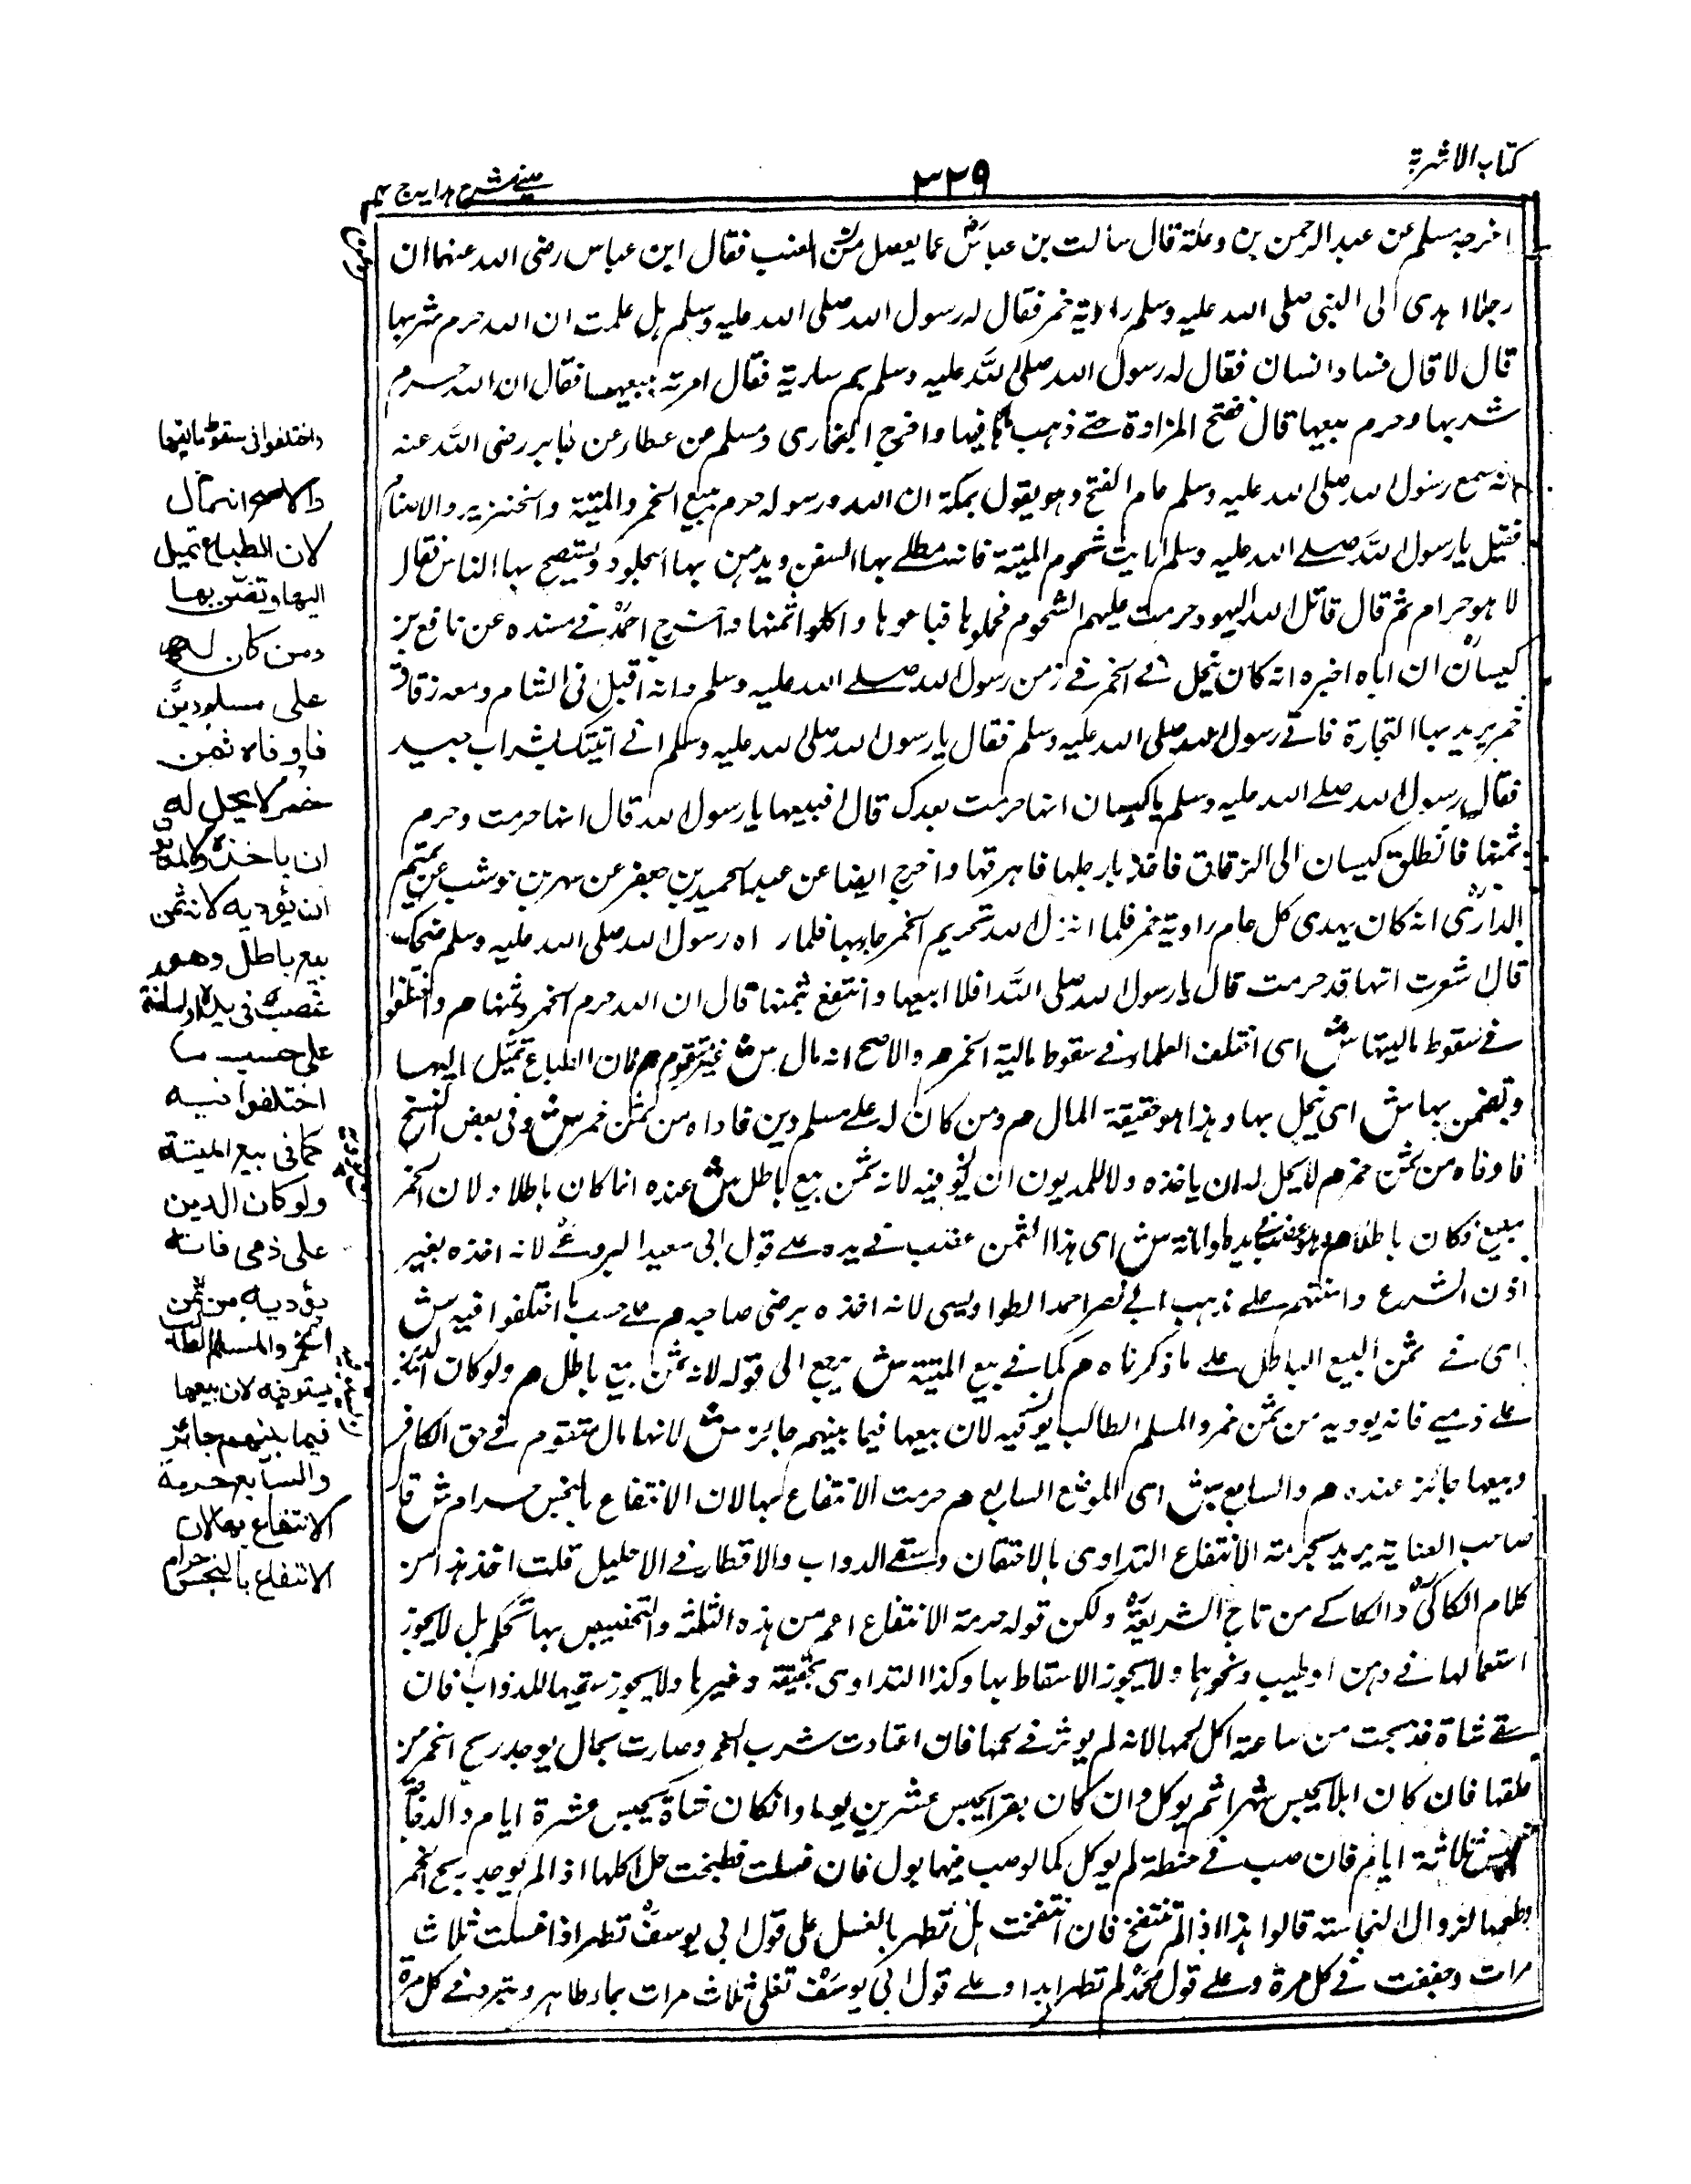 كتاب الاشربة
٣٢٩
عيني شرح هدايه ج ٤
اخرجه مسلم عن عبد الرحمن بن وعلة قال سألت بن عباس عما يعصر من العنب فقال ابن عباس رضى الله عنهما ان
رجلا اهدى الى النبى صلى الله عليه وسلم راوية خمر فقال له رسول الله صلى الله عليه وسلم هل علمت ان الله حرم شربها
قال لا قال فساد انسان فقال له رسول الله صلى الله عليه وسلم بم ساريته فقال امرته ببيعها فقال ان الله حرم
شربها وحرم بيعها قال ففتح المزادة حتى ذهب ما فيها واخرج البخارى ومسلم عن عطاء عن جابر رضى الله عنه
انه سمع رسول الله صلى الله عليه وسلم عام الفتح وهو يقول بمكة ان الله ورسوله حرم بيع الخمر والميتة والخنزير والاصنام
فقيل يا رسول الله صلى الله عليه وسلم ارايت شحوم الميتة فانه يطلى بها السفن ويدهن بها الجلود ويستصبح بها الناس فقال
لا هو حرام ثم قال قاتل الله اليهود حرمت عليهم الشحوم فجملوها فباعوها واكلوا ثمنها واخرج احمد فى مسنده عن نافع بن
كيسان ان اباه اخبره انه كان يحمل فى الخمر فى زمن رسول الله صلى الله عليه وسلم وانه اقبل فى الشام ومعه زقاق
خمر يريد بها التجارة فاتى رسول الله صلى الله عليه وسلم فقال يا رسول الله صلى الله عليه وسلم انى اتيتك بشراب جيد
فقال رسول الله صلى الله عليه وسلم يا كيسان انها حرمت بعدك قال افبيعها يا رسول الله قال انها حرمت وحرم
ثمنها فانطلق كيسان الى الزقاق فاخذ بارجلها فاهرقها واخرج ايضا عن عبد الحميد بن جعفر عن شهر بن حوشب عن تميم
الدارى انه كان يهدى كل عام راوية خمر فلما انزل الله تحريم الخمر جاء بها فلما راه رسول الله صلى الله عليه وسلم ضحك
قال اشعرت انها قد حرمت قال يا رسول الله صلى الله افلا ابيعها وانتفع بثمنها قال ان الله حرم الخمر وثمنها م واختلفوا
فى سقوط ماليتها ش اى اختلف العلماء فى سقوط مالية الخمر م والاصح انه مال ش غير متقوم م لان الطباع تميل اليها
وتضمن بها ش اى تبخل بها وهذا هو حقيقة المال م ومن كان له على مسلم دين فاداه من ثمن خمر ش وفى بعض النسخ
فاوفاه من ثمن خمر م لا يحل له ان ياخذه ولا للمديون ان يوفيه لانه ثمن بيع باطل ش عنده انما كان باطلا لان الخمر
بيع فكان باطلا م وهو غصب فى يده او امانة ش اى هذا الثمن غضب فى يده على قول ابى سعيد البردعى لانه اخذه بغير
اذن الشرع وامانتهم على مذهب ابى نصر احمد الطواويسى لانه اخذه برضى صاحبه م على حسب ما اختلفوا فيه ش
اى فى ثمن البيع الباطل على ما ذكرناه م كما فى بيع الميتة ش يرجع الى قوله لانه ثمن بيع باطل م ولو كان الدين
على ذمى فانه يوديه من ثمن خمر والمسلم الطالب يوفيه لان بيعها فيما بينهم جائز ش لانها مال متقوم فى حق الكافر
وبيعها جائز عنده م والسابع ش اى الموضع السابع م حرمت الانتفاع بها لان الانتفاع بالنجس حرام ش قال
صاحب العناية يريد بحرمة الانتفاع التداوى بالاحتقان وسقى الدواب والاقطار فى الاحليل قلت اخذ هذا من
كلام الكاكى والكاكى من تاج الشريعة ولكن قوله حرمة الانتفاع اعم من هذه الثلثة والتخصيص بها تحكم بل لا يجوز
استعمالها فى دهن او طيب ونحوها ولا يجوز الاسقاط بها وكذا التداوى بحقيقة وغيرها ولا يجوز سقيها للدواب فان
سقى شاة فذبحت من ساعته اكل لحمها لانه لم يوثر فى لحمها فان اعتادت شرب الخمر وصارت بحال يوجد ريح الخمر من
حلقها فان كان ابلا يحبس شهرا ثم يوكل وان كان بقرا يحبس عشرين يوما وانكان شاة يحبس عشرة ايام والدجاجة
يحبس ثلاثة ايام فان صب فى حنطة لم يوكل كما لو صب فيها بول فان غسلت فطبخت حل اكلها اذا لم يوجد ريح الخمر
وطعمها لزوال النجاسة قالوا هذا اذا لم تنتفخ فان انتفخت هل تطهر بالغسل على قول ابى يوسف تطهر اذا غسلت ثلاث
مرات وجففت فى كل مرة وعلى قول محمد لم تطهر ابدا وعلى قول ابى يوسف تغلى ثلاث مرات بماء طاهر وتبرد فى كل مرة
واختلفوا فى سقوط ماليتها
والاصح انه مال
لان الطباع تميل
اليها وتضن بها
ومن كان له
على مسلم دين
فاوفاه ثمن
خمر لا يحل له
ان ياخذه ولا للمديون
ان يؤديه لانه ثمن
بيع باطل وهو
غصب فى يده او امانة
على حسب ما
اختلفوا فيه
كما فى بيع الميتة
ولو كان الدين
على ذمى فانه
يؤديه من ثمن
الخمر والمسلم الطالب
يستوفيه لان بيعها
فيما بينهم جائز
والسابع حرمة
الانتفاع بها لان
الانتفاع بالنجس حرام